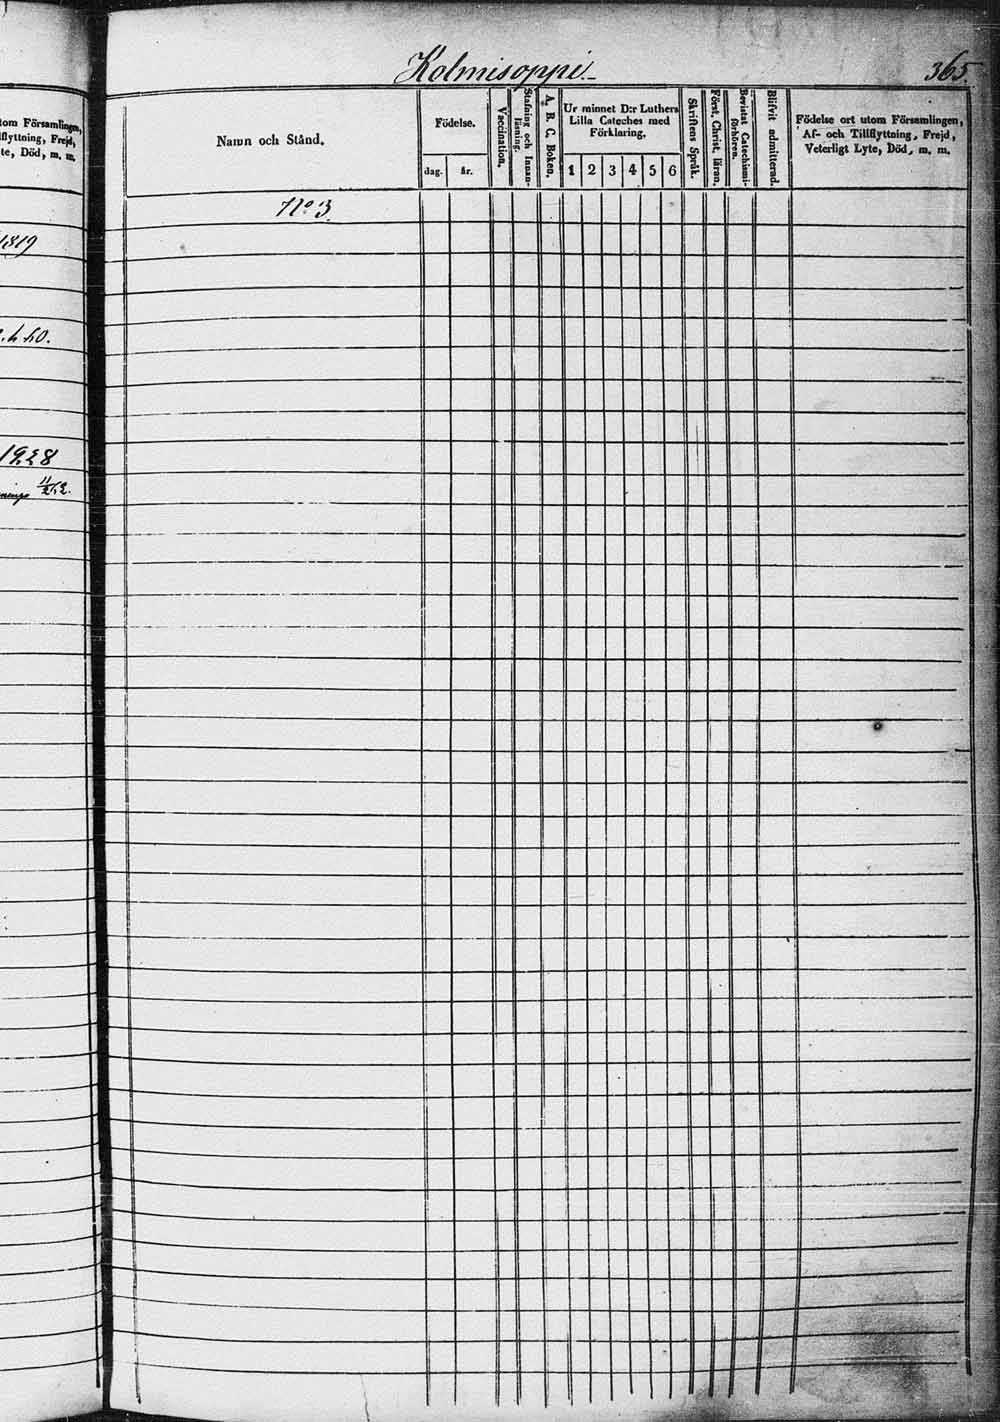 Kolmisoppi
365.
tom Församlingen,
flyttning, Frejd,
te, Död, m. m.
1819
1928
11/2 12.
Namn och Stånd.
Födelse.
dag.
år.
Vaccination.
Stafning och Innan-
läsning.
A. B. C. Boken.
Ur minnet D:r Luthers
Lilla Cateches med
Förklaring.
1 2 3 4 5 6
Skriftens Språk.
Först. Christ. läran.
Bevistat Catechismi-
förhören.
Blifvit admitterad.
Födelse ort utom Församlingen,
Af- och Tillflyttning, Frejd,
Veterligt Lyte, Död, m. m.
No 3